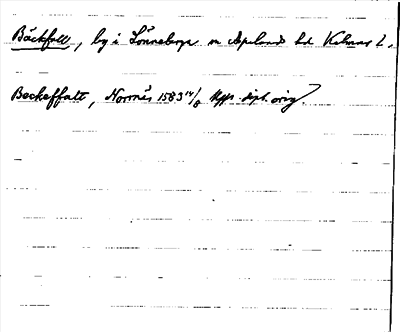 Bäckfall, by i Lönneberga sn Aspelands hd Kalmar l.
Beckeffatt, Norrnäs 1583 14/8 Upps. dipl. orig.